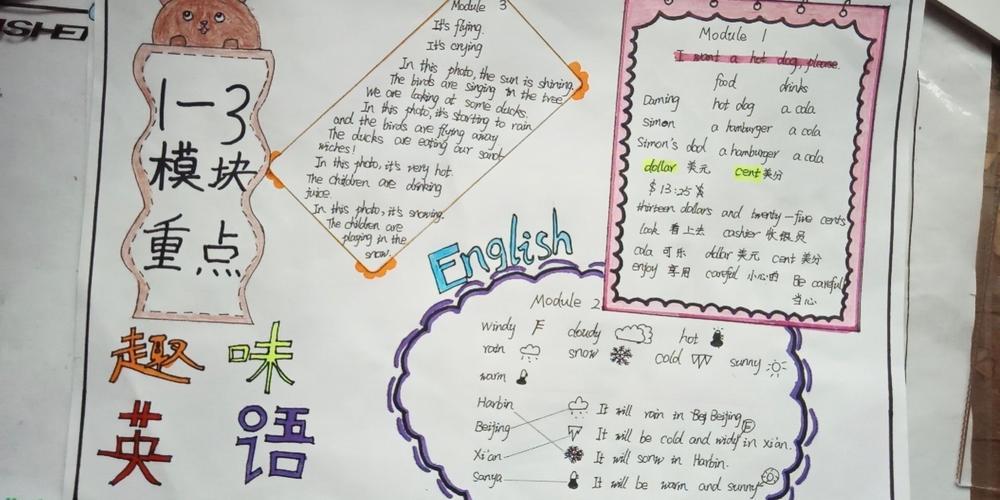 1-3
模块
重点
趣味
英语
Module 3
It's flying.
It's crying
In this photo, the sun is shining.
The birds are singing in the tree
we are looking at some ducks.
In this photo, it's starting to rain
and the birds are flying away
The ducks are eating our sand-
wiches!
In this photo, it's very hot.
The children are drinking
juice.
In this photo, it's snowing.
The children are
playing in the
snow.
English
Module 1
I want a hot dog, please.
food drinks
Daming hot dog a cola
Simon a hamburger a cola
Simon's dad a hamburger a cola
dollar 美元 cent 美分
$ 13:25
thirteen dollars and twenty-five cents
look 看上去 cashier 收银员
cola 可乐 dollar 美元 cent 美分
enjoy 享用 careful 小心的 Be careful
当心
Module 2
windy cloudy hot
rain snow cold sunny
warm
Harbin It will rain in Bej Beijing
Beijing It will be cold and widy in Xi'an.
Xi'an It will sonw in Harbin.
Sanya It will be warm and sunny